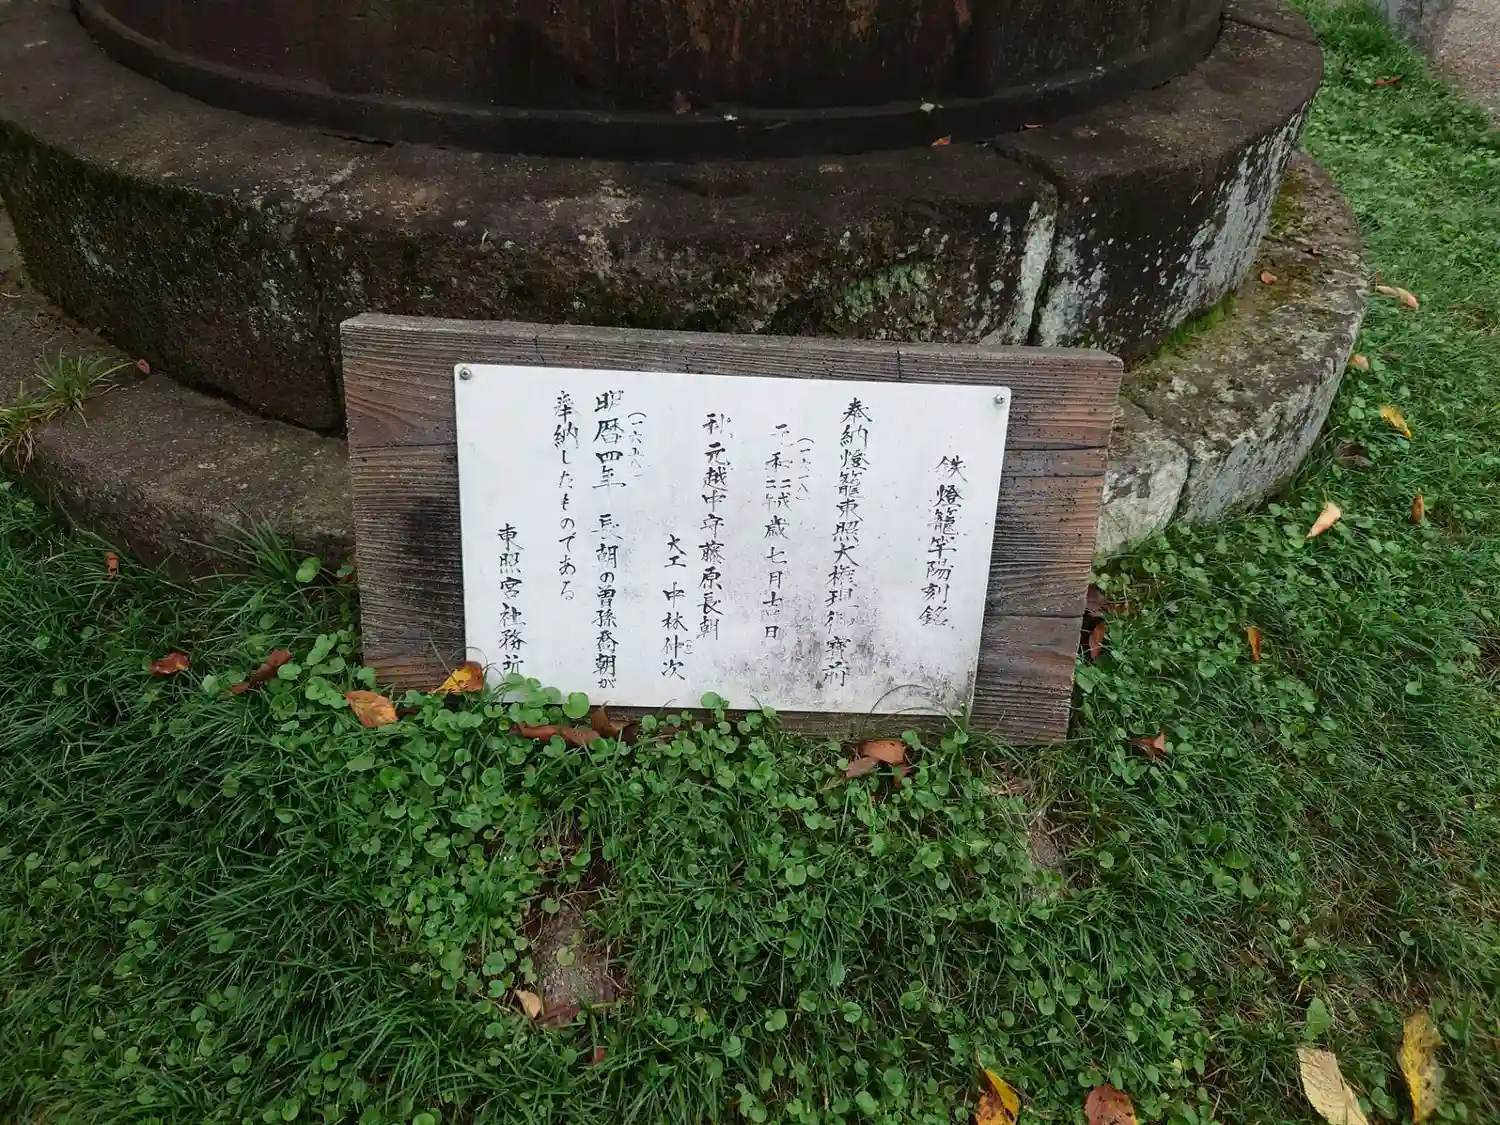 鉄燈籠竿陽刻銘
奉納燈籠東照大権現御寶前
(一六一八)
元和二二戊歳七月十四日
秋元越中守藤原長朝
大工 中林仲次
(一六五八)
明暦四年 長朝の曽孫喬朝が
奉納したものである
東照宮社務所